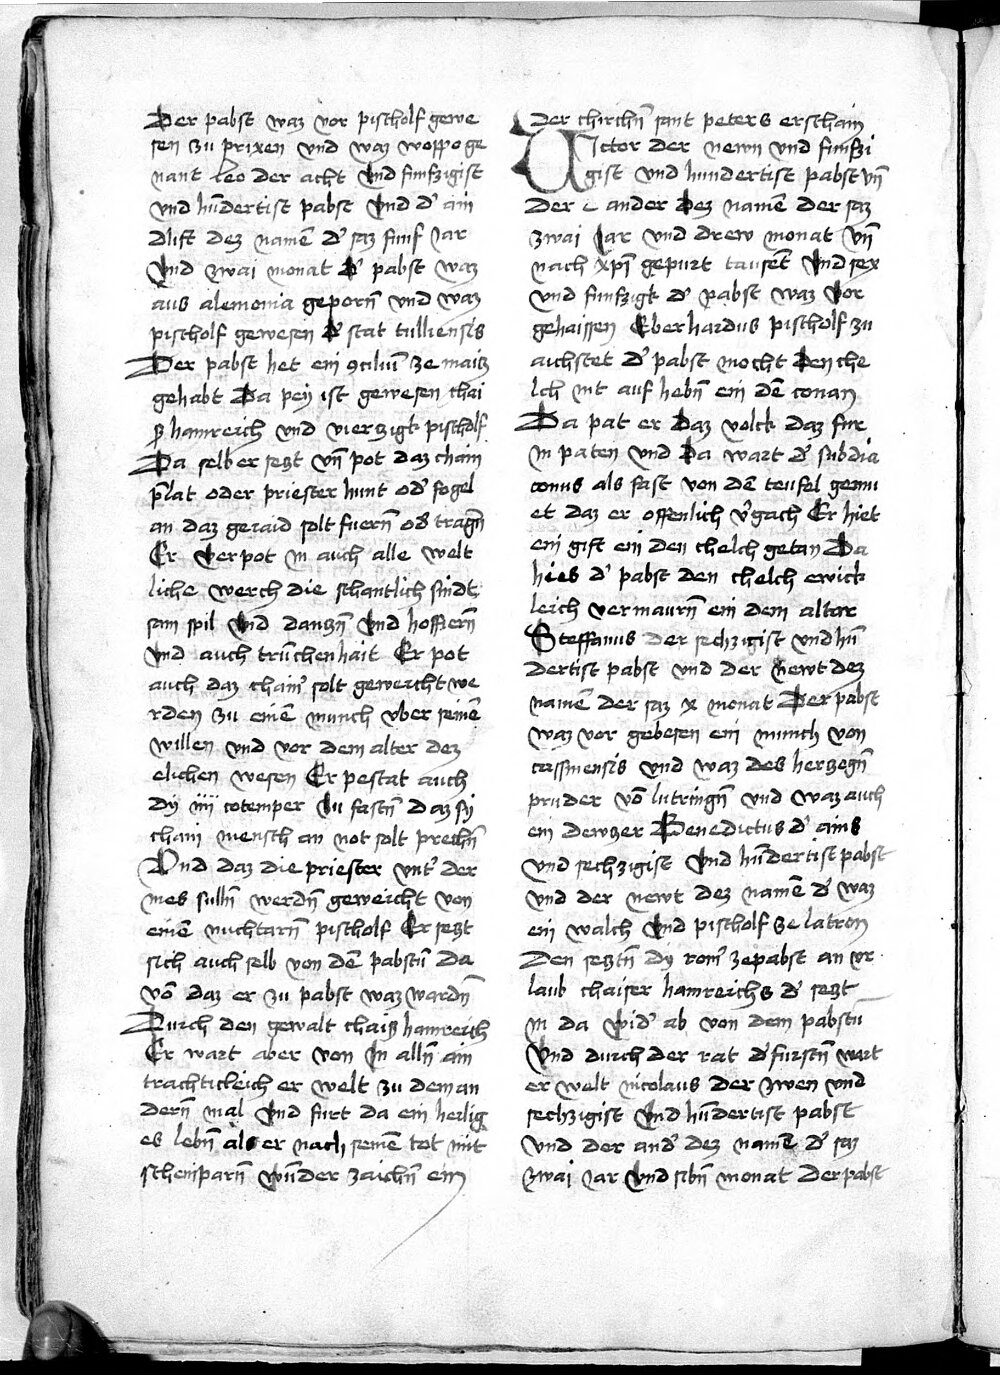 Der pabst waz vor pischolf gewe
sen zu prixen vnd waz woppo ge
nant Leo der acht vnd finfzigist
vnd hūdertist pabst vnd d' ain
dlift dez namē d' saz finf Jar
vnd zwai monat d' pabst waz
aus alemonia geporñ vnd waz
pischolf gewesen d' stat tulliensis
Der pabst het ein 9ciliū ze maitz
gehabt Da peÿ ist gewesen chai
ß hainreich vnd vierzigk pischolf
Da selber sezt vñ pot daz chain
p̄lat oder priester hunt od' fogel
an daz geiaid solt fuerñ od' tragñ
Er verpot in auch alle welt
liche werch die schantlich sindt
sam spil vnd danczñ vnd hoffierñ
vnd auch trūchenhait Er pot
auch daz chain' solt geweicht we
rden zu einē munch vber seinē
willen vnd vor dem alter dez
elichen wesen Er pestat auch
dÿ iiii cotemper zu fastñ daz sÿ
chain mensch an not solt prechñ
Vnd daz die priester vnt' der
mes sullñ werdñ geweicht von
einē nuchtarñ pischolf Er sezt
sich auch selb von dē pabstū da
vō daz er zu pabst waz wardñ
Durch den gewalt chaiß hainreich
Er wart aber von in allñ ain
trachticleich er welt zu dem an
derñ mal vnd fürt da ein heilig
es lebñ als er nach seinē tot mit
scheinparñ wūder zaichñ ein
der chirchñ sant peters erschain
Victor der newn vnd finfzi
gist vnd hundertist pabst vñ
Der ander dez namē der saz
zwai Jar vnd drew monat vñ
nach xpi gepurt tausēt vnd sex
vnd finfzigk d' pabst waz vor
gehaissen Eberhardus pischolf zu
aichstet d' pabst mocht den che
lch nit auf hebñ ein dē conan
Da pat er daz volck daz fur
in paten vnd da wart d' subdia
conus als fast von dē teufel gemu
et daz er offenlich v'gach Er hiet
ein gift ein den chelch getan Da
hies d' pabst den chelch ewick
leich vermaurñ ein dem altar
Steffanus der sechzigist vnd hū
dertist pabst vnd der newt dez
namē der saz x monat Der pabst
waz vor gebesen ein munich von
cassinensis vnd waz des herzegñ
pruder vō lutringñ vnd waz auch
ein dewzer Benedictus d' ains
vnd sechzigist vnd hūdertist pabst
vnd der newt dez namē d' waz
ein walch vnd pischolf ze latron
Den seztñ dÿ rom' ze pabst an vr
laub chaiser hainreichs d' sezt
in da wid' ab von dem pabstū
vnd durch der rat d' furstñ wart
er welt nicolaus der zwen vnd
sechzigist vnd hūdertist pabst
vnd der and' dez namē d' saz
zwai Jar vnd sibñ monat Der pabst